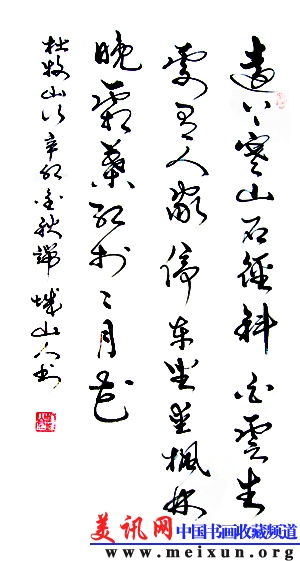 遠上寒山石徑斜白雲生
處有人家停車坐愛楓林
晚霜葉紅於二月花
杜牧山行辛卯金秋城山人书
美讯网 中国书画收藏频道
www.meixun.org